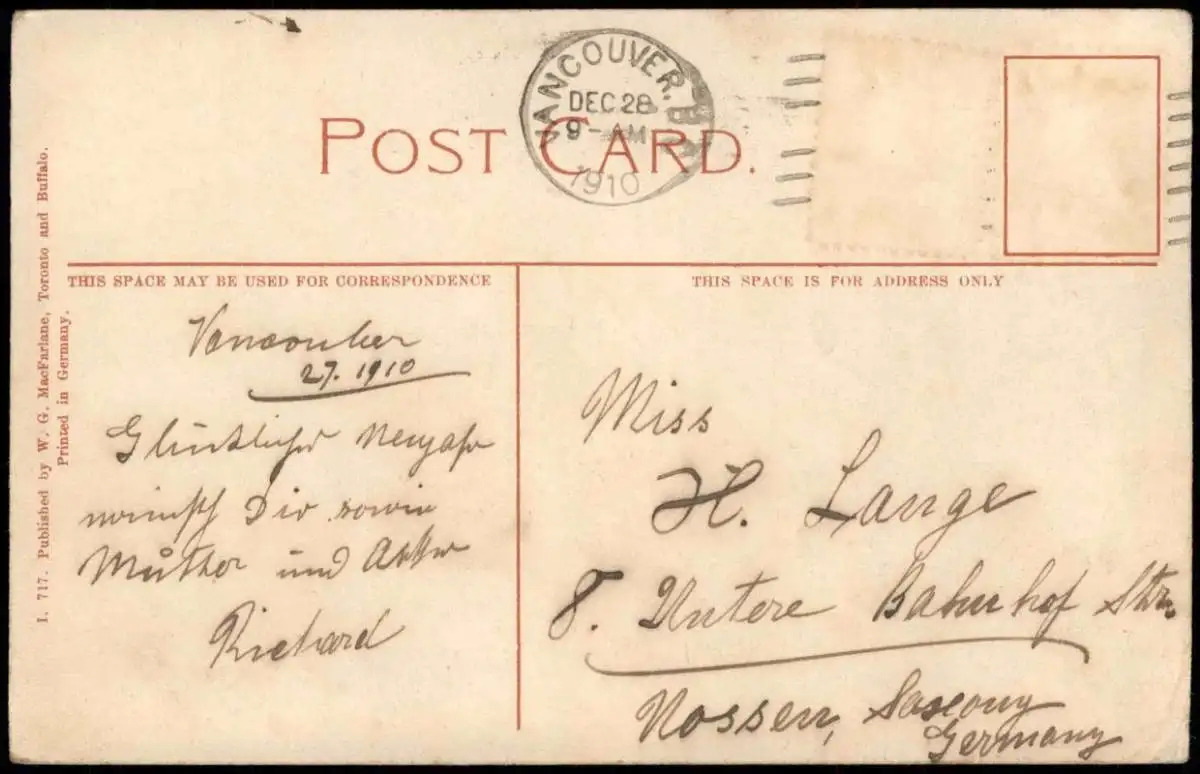 VANCOUVER. B.C.
DEC 28
9-AM
1910
POST CARD.
THIS SPACE MAY BE USED FOR CORRESPONDENCE
THIS SPACE IS FOR ADDRESS ONLY
I. 717. Published by W. G. MacFarlane, Toronto and Buffalo.
Printed in Germany.
Vancouver
27. 1910
Glückliches Neujahr
wünscht Dir sowie
Mutter und
Richard
Miss
H. Lange
8. Untere Bahnhof Str.
Nossen, Saxony
Germany